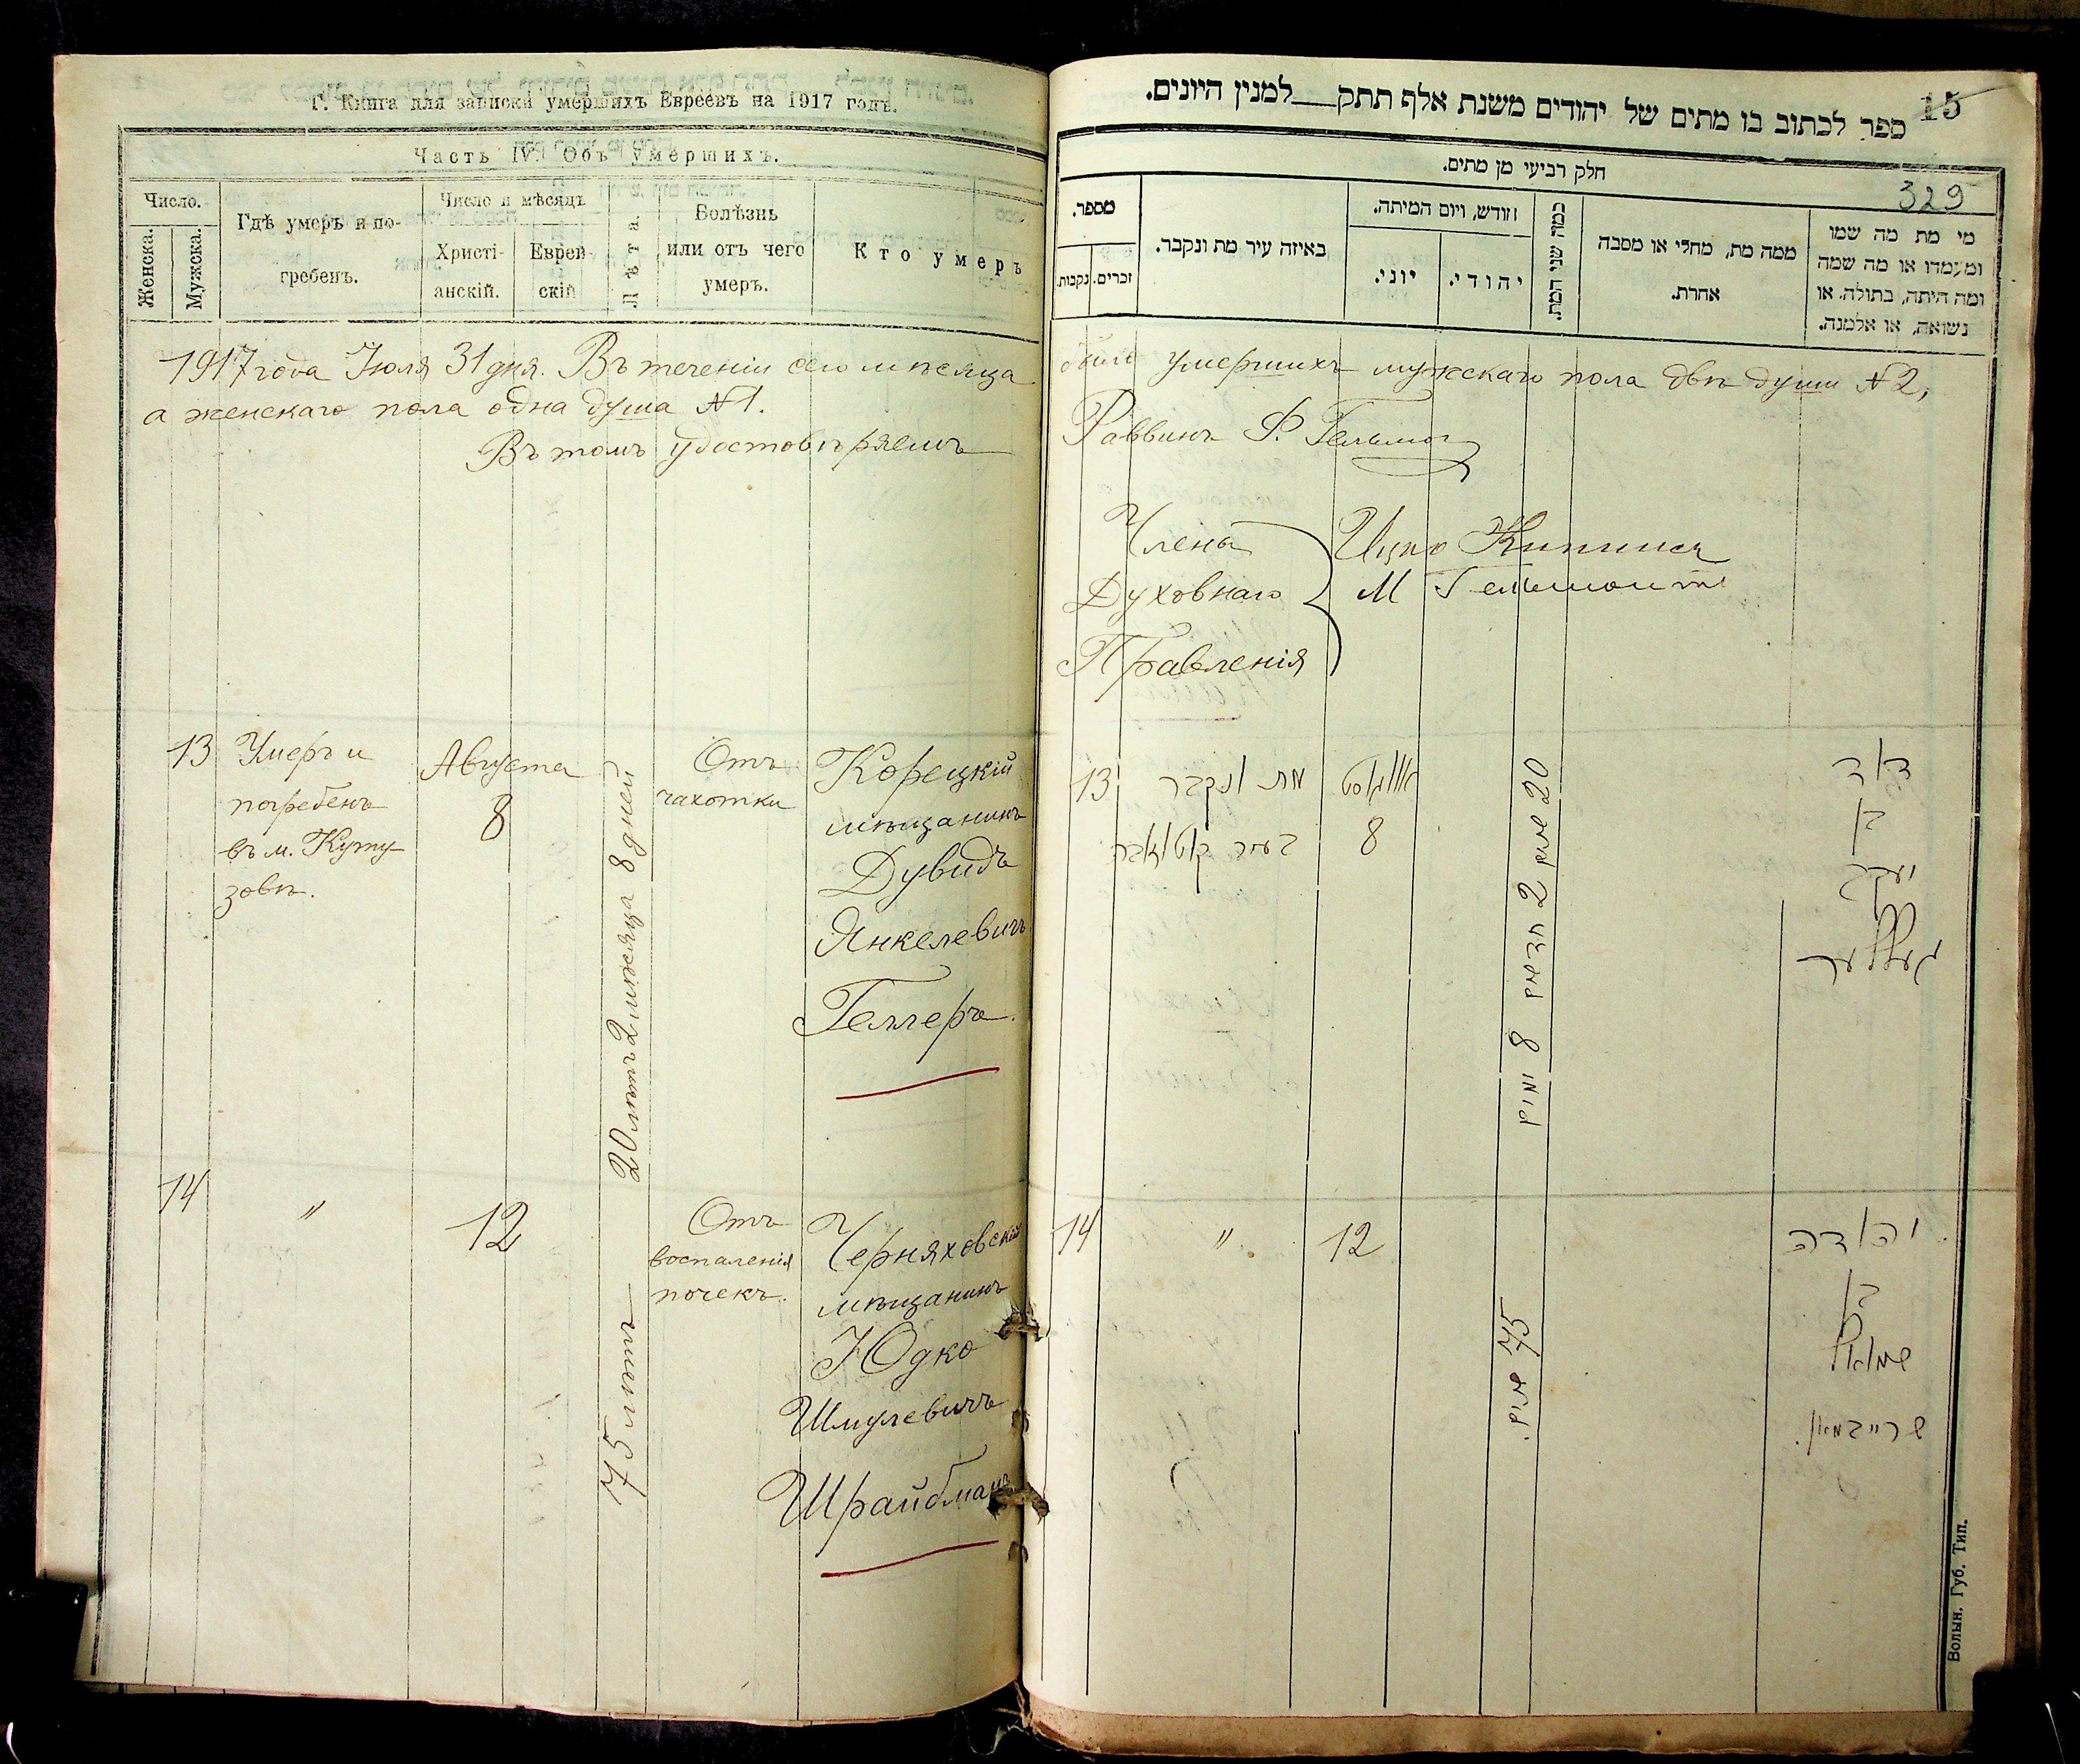 Г. Книга для записки умершихъ Евреевъ на 1917 годъ.
Часть IV. Объ умершихъ.
Число.
Женска.
Мужска.
Гдѣ умеръ и по-
гребенъ.
Число и мѣсяцъ
Христі-
анскій.
Еврей-
скій
Лѣта.
Болѣзнь
или отъ чего
умеръ.
Кто умеръ
1917 года Іюля 31 дня. Въ теченіи сего мѣсяца
а женскаго пола одна душа №1.
Въ томъ удостовѣряемъ
13
Умеръ и
погребенъ
въ м. Куту-
зовѣ.
Августа
8
20 лѣтъ 2 мѣсяца 8 дней
Отъ
чахотки
Корецкій
мѣщанинъ
Дувидъ
Янкелевичъ
Геллеръ.
14
"
12
75 лѣтъ
Отъ
воспаленія
почекъ.
Черняховскій
мѣщанинъ
Юдко
Шмулевичъ
Шрайбманъ
15
ספר לכתוב בו מתים של יהודים משנת אלף תתק למנין היונים.
חלק רביעי מן מתים.
329
מספר.
זכרים.
נקבות.
באיזה עיר מת ונקבר.
חודש, ויום המיתה.
יוני.
יהודי.
כמה שני המת.
ממה מת, מחלי או מסבה
אחרת.
מי מת מה שמו
ומעמדו או מה שמה
ומה היתה, בתולה, או
נשואה, או אלמנה.
было умершихъ мужскаго пола двѣ души №2,
Раввинъ Ф.
Члены
Духовнаго
Правленія
Ицко Кипнисъ
М
13
מת ונקבר
בעיר קוטוזובה
אווגוסט
8
20 שנים 2 חדשים 8 ימים
דוד
בן
יעקב
געללער
14
"
12
75 שנים.
יהודה
בן
שמואל
שרייבמאן.
Волын. Губ. Тип.